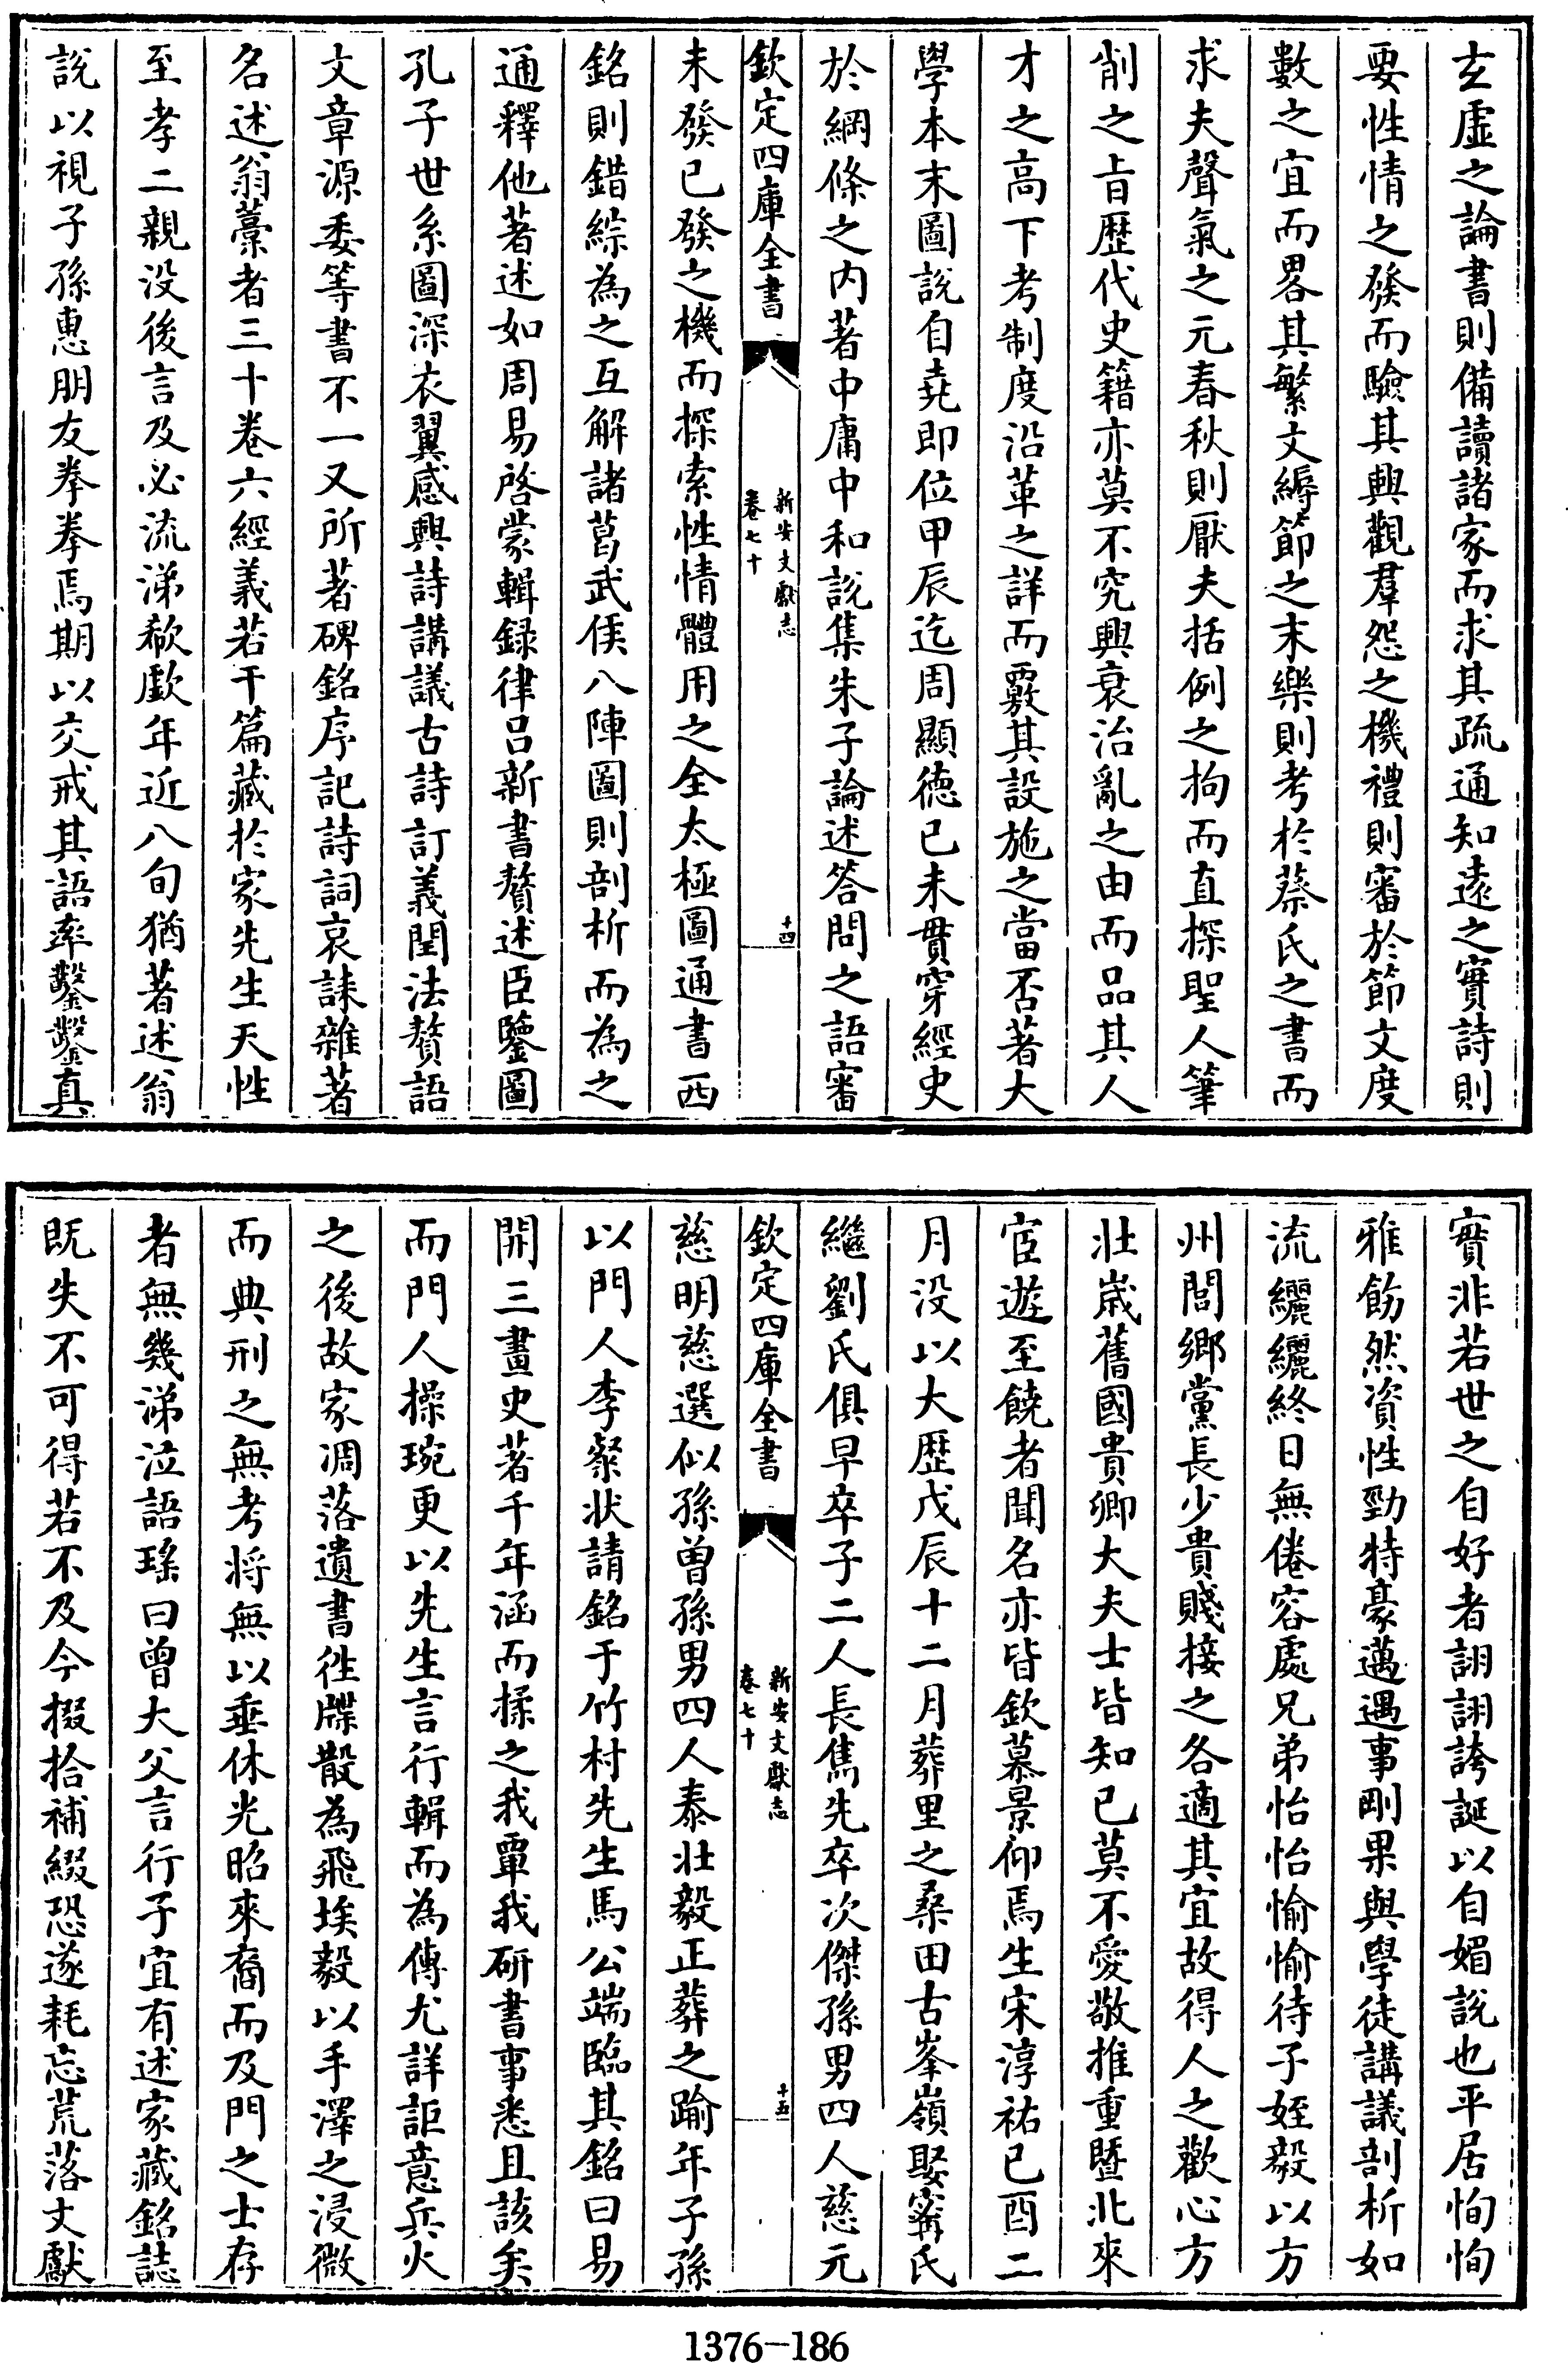 玄虛之論書則備讀諸家而求其疏通知遠之實詩則
要性情之發而驗其興觀羣怨之機禮則審於節文度
數之宜而畧其繁文縟節之末樂則考於蔡氏之書而
求夫聲氣之元春秋則厭夫括例之拘而直探聖人筆
削之旨歴代史籍亦莫不究興衰治亂之由而品其人
才之高下考制度沿革之詳而覈其設施之當否著大
學本末圖說自堯即位甲辰迄周顯德已未貫穿經史
於綱條之内著中庸中和說集朱子論述答問之語審
欽定四庫全書
新安文獻志
卷七十
十四
未發已發之機而探索性情體用之全太極圖通書西
銘則錯綜為之互解諸葛武侯八陣圖則剖析而為之
通釋他著述如周易啓蒙輯録律吕新書贅述臣鑒圖
孔子世系圖深衣翼感興詩講議古詩訂義閏法贅語
文章源委等書不一又所著碑銘序記詩詞哀誄雜著
名述翁藁者三十卷六經義若干篇藏於家先生天性
至孝二親没後言及必流涕欷歔年近八旬猶著述翁
說以視子孫惠朋友拳拳焉期以交戒其語率鑿鑿真
實非若世之自好者詡詡誇誕以自媚說也平居恂恂
雅飭然資性勁特豪邁遇事剛果與學徒講議剖析如
流纚纚終日無倦容處兄弟怡怡愉愉待子姪毅以方
州閭鄉黨長少貴賤接之各適其宜故得人之歡心方
壯歲舊國貴卿大夫士皆知已莫不愛敬推重暨北來
宦遊至饒者聞名亦皆欽慕景仰焉生宋淳祐已酉二
月没以大歴戊辰十二月葬里之桑田古峯嶺娶甯氏
繼劉氏俱早卒子二人長雋先卒次傑孫男四人慈元
欽定四庫全書
新安文獻志
卷七十
十五
慈明慈選似孫曾孫男四人泰壯毅正葬之踰年子孫
以門人李粲狀請銘于竹村先生馬公端臨其銘曰易
開三畫史著千年涵而揉之我覃我研書事悉且該矣
而門人操琬更以先生言行輯而為傳尤詳詎意兵火
之後故家凋落遺書徃牒散為飛埃毅以手澤之浸微
而典刑之無考将無以垂休光昭來裔而及門之士存
者無幾涕泣語瑤曰曾大父言行子宜有述家藏銘誌
既失不可得若不及今掇拾補綴恐遂耗忘荒落文獻
1376-186